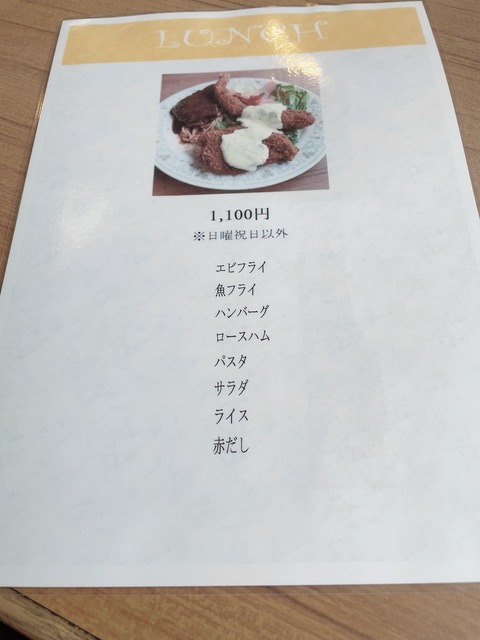 LUNCH
1,100円
※日曜祝日以外
エビフライ
魚フライ
ハンバーグ
ロースハム
パスタ
サラダ
ライス
赤だし